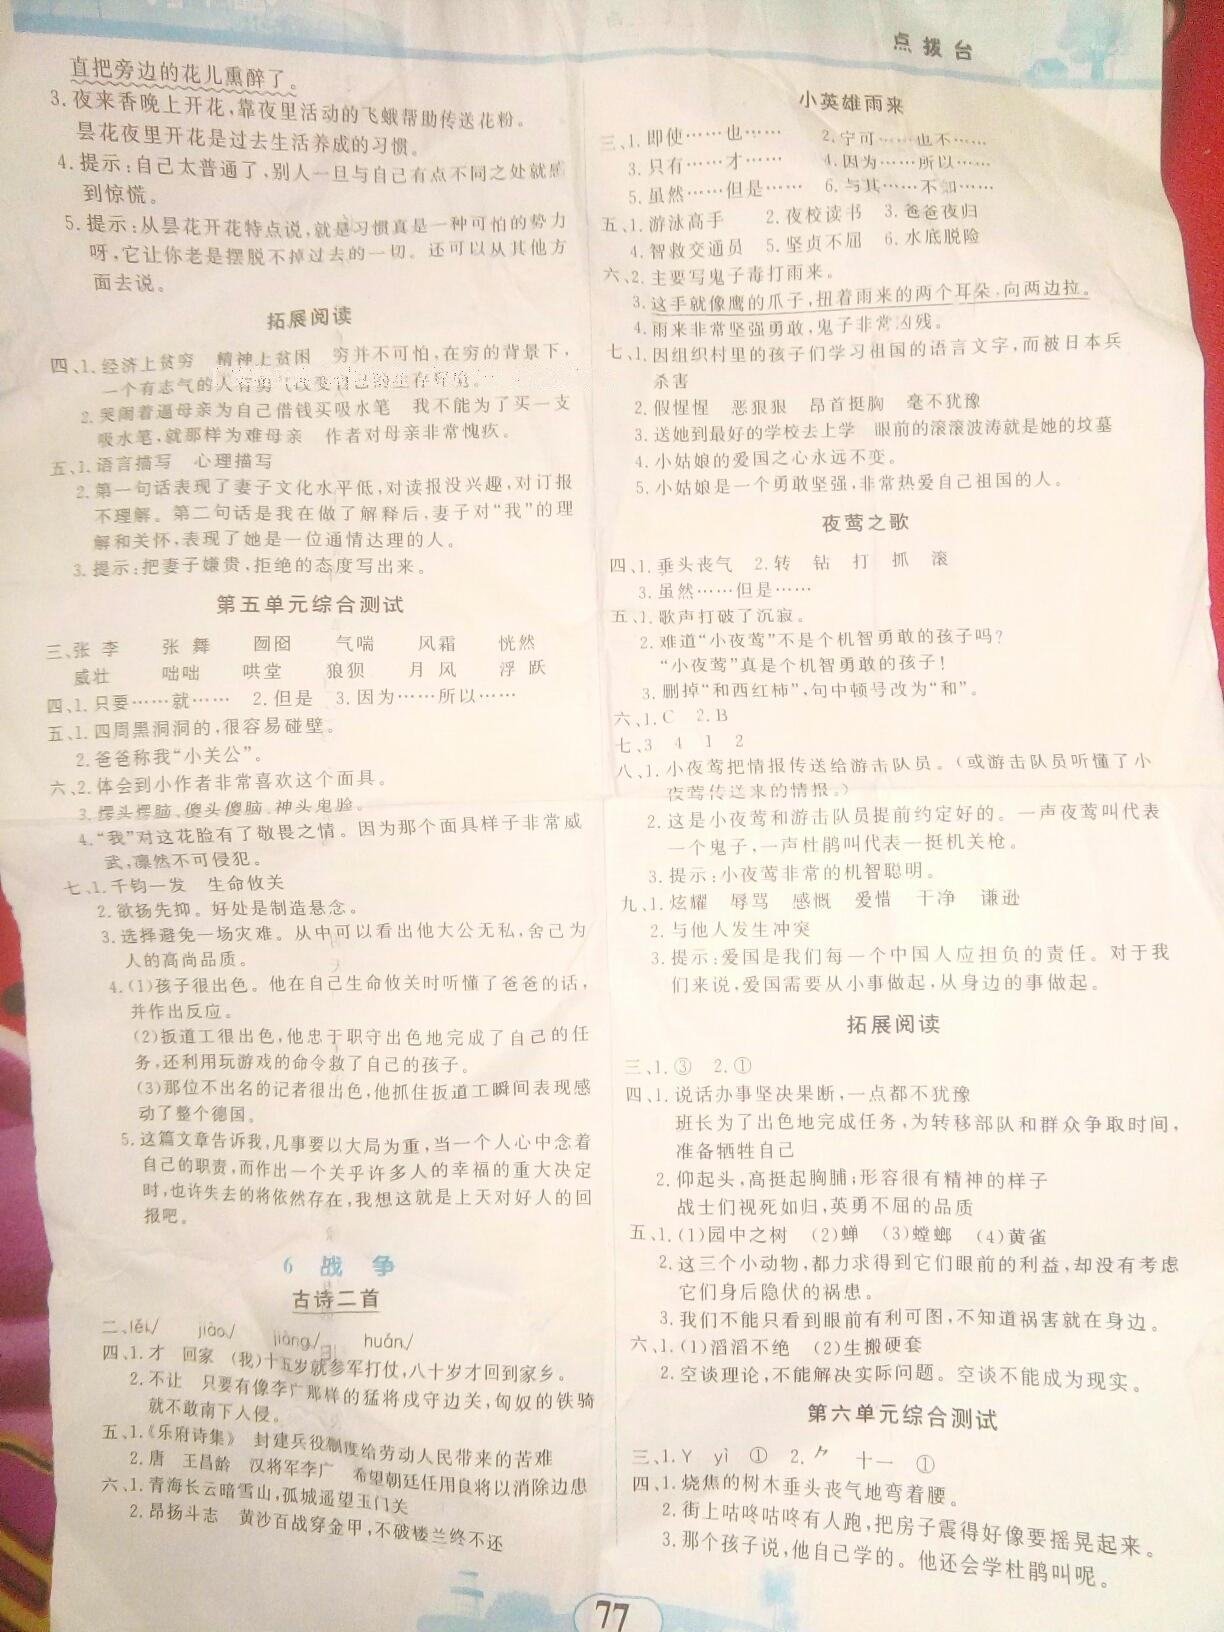 点拨台
直把旁边的花儿熏醉了。
3.夜来香晚上开花,靠夜里活动的飞蛾帮助传送花粉。
昙花夜里开花是过去生活养成的习惯。
4.提示:自己太普通了,别人一旦与自己有点不同之处就感
到惊慌。
5.提示:从昙花开花特点说,就是习惯真是一种可怕的势力
呀,它让你老是摆脱不掉过去的一切。还可以从其他方
面去说。
拓展阅读
四、1.经济上贫穷 精神上贫困 穷并不可怕,在穷的背景下,
一个有志气的人有勇气改变自己的生存环境。
2.哭闹着逼母亲为自己借钱买吸水笔 我不能为了买一支
吸水笔,就那样为难母亲 作者对母亲非常愧疚。
五、1.语言描写 心理描写
2.第一句话表现了妻子文化水平低,对读报没兴趣,对订报
不理解。第二句话是我在做了解释后,妻子对“我”的理
解和关怀,表现了她是一位通情达理的人。
3.提示:把妻子嫌贵,拒绝的态度写出来。
第五单元综合测试
三、张 李 张 舞 囫囵 气喘 风霜 恍然
威壮 咄咄 哄堂 狼狈 月 风 浮 跃
四、1.只要……就…… 2.但是 3.因为……所以……
五、1.四周黑洞洞的,很容易碰壁。
2.爸爸称我“小关公”。
六、2.体会到小作者非常喜欢这个面具。
3.愣头愣脑、傻头傻脑、神头鬼脸。
4.“我”对这花脸有了敬畏之情。因为那个面具样子非常威
武,凛然不可侵犯。
七、1.千钧一发 生命攸关
2.欲扬先抑。好处是制造悬念。
3.选择避免一场灾难。从中可以看出他大公无私,舍己为
人的高尚品质。
4.(1)孩子很出色。他在自己生命攸关时听懂了爸爸的话,
并作出反应。
(2)扳道工很出色,他忠于职守出色地完成了自己的任
务,还利用玩游戏的命令救了自己的孩子。
(3)那位不出名的记者很出色,他抓住扳道工瞬间表现感
动了整个德国。
5.这篇文章告诉我,凡事要以大局为重,当一个人心中念着
自己的职责,而作出一个关乎许多人的幸福的重大决定
时,也许失去的将依然存在,我想这就是上天对好人的回
报吧。
6 战争
古诗二首
二、lěi✓ jiào✓ jiàng✓ huán✓
四、1.才 回家 (我)十五岁就参军打仗,八十岁才回到家乡。
2.不让 只要有像李广那样的猛将戍守边关,匈奴的铁骑
就不敢南下人侵。
五、1.《乐府诗集》 封建兵役制度给劳动人民带来的苦难
2.唐 王昌龄 汉将军李广 希望朝廷任用良将以消除边患
六、1.青海长云暗雪山,孤城遥望玉门关
2.昂扬斗志 黄沙百战穿金甲,不破楼兰终不还
小英雄雨来
三、1.即使……也…… 2.宁可……也不……
3.只有……才…… 4.因为……所以……
5.虽然……但是…… 6.与其……不如……
五、1.游泳高手 2.夜校读书 3.爸爸夜归
4.智救交通员 5.坚贞不屈 6.水底脱险
六、2.主要写鬼子毒打雨来。
3.这手就像鹰的爪子,扭着雨来的两个耳朵,向两边拉。
4.雨来非常坚强勇敢,鬼子非常凶残。
七、1.因组织村里的孩子们学习祖国的语言文字,而被日本兵
杀害
2.假惺惺 恶狠狠 昂首挺胸 毫不犹豫
3.送她到最好的学校去上学 眼前的滚滚波涛就是她的坟墓
4.小姑娘的爱国之心永远不变。
5.小姑娘是一个勇敢坚强,非常热爱自己祖国的人。
夜莺之歌
四、1.垂头丧气 2.转 钻 打 抓 滚
3.虽然……但是……
五、1.歌声打破了沉寂。
2.难道“小夜莺”不是个机智勇敢的孩子吗?
“小夜莺”真是个机智勇敢的孩子!
3.删掉“和西红柿”,句中顿号改为“和”。
六、1.C 2.B
七、3 4 1 2
八、1.小夜莺把情报传送给游击队员。(或游击队员听懂了小
夜莺传送来的情报。)
2.这是小夜莺和游击队员提前约定好的。一声夜莺叫代表
一个鬼子,一声杜鹃叫代表一挺机关枪。
3.提示:小夜莺非常的机智聪明。
九、1.炫耀 辱骂 感慨 爱惜 干净 谦逊
2.与他人发生冲突
3.提示:爱国是我们每一个中国人应担负的责任。对于我
们来说,爱国需要从小事做起,从身边的事做起。
拓展阅读
三、1.③ 2.①
四、1.说话办事坚决果断,一点都不犹豫
班长为了出色地完成任务,为转移部队和群众争取时间,
准备牺牲自己
2.仰起头,高挺起胸脯;形容很有精神的样子
战士们视死如归,英勇不屈的品质
五、1.(1)园中之树 (2)蝉 (3)螳螂 (4)黄雀
2.这三个小动物,都力求得到它们眼前的利益,却没有考虑
它们身后隐伏的祸患。
3.我们不能只看到眼前有利可图,不知道祸害就在身边。
六、1.(1)滔滔不绝 (2)生搬硬套
2.空谈理论,不能解决实际问题。空谈不能成为现实。
第六单元综合测试
三、1.Y yì ① 2.⺈ 十一 ①
四、1.烧焦的树木垂头丧气地弯着腰。
2.街上咕咚咕咚有人跑,把房子震得好像要摇晃起来。
3.那个孩子说,他自己学的。他还会学杜鹃叫呢。
77